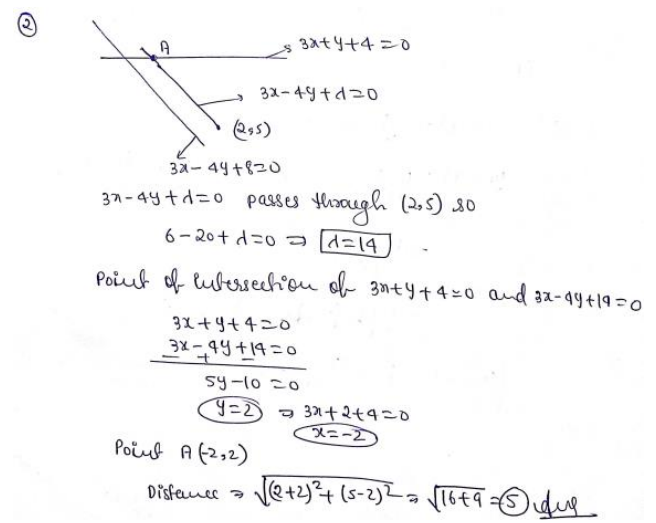 ②
A
3x+y+4=0
3x-4y+λ=0
(2,5)
3x-4y+8=0
3x-4y+λ=0 passes through (2,5) so
6-20+λ=0 ⇒ λ=14
Point of Intersection of 3x+y+4=0 and 3x-4y+14=0
3x+y+4=0
3x-4y+14=0
- + -
5y-10=0
y=2 ⇒ 3x+2+4=0
x=-2
Point A(-2,2)
Distance ⇒ √(2+2)²+(5-2)² = √16+9 = 5 Ans